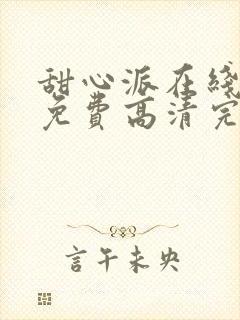 甜心派在线
免费高清完
言午未央